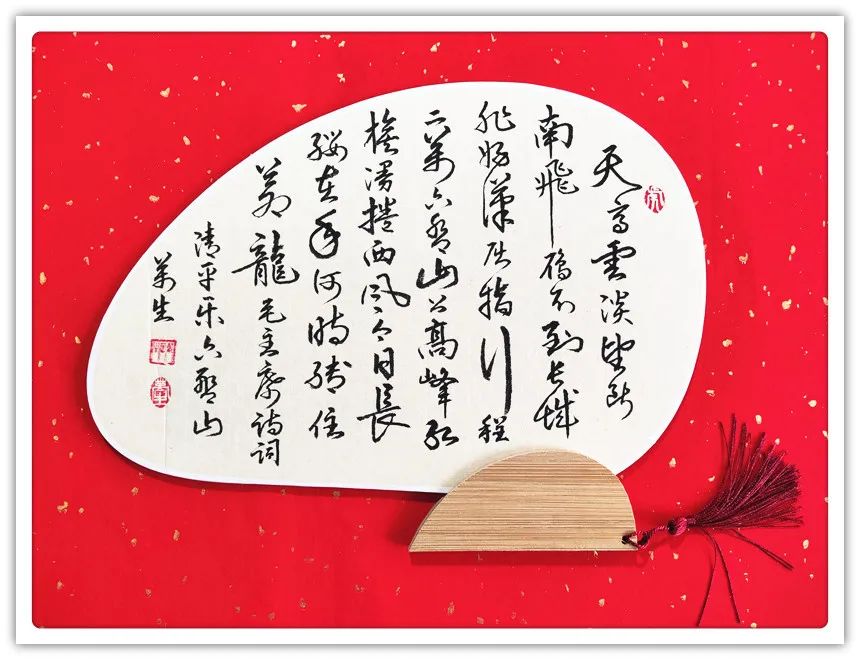 天高雲淡望斷
南飛雁不到长城
非好漢屈指行程
二萬六盤山上高峰红
旗漫捲西风今日長
缨在手何時缚住
蒼龍毛主席詩詞
清平乐六盤山
萬生